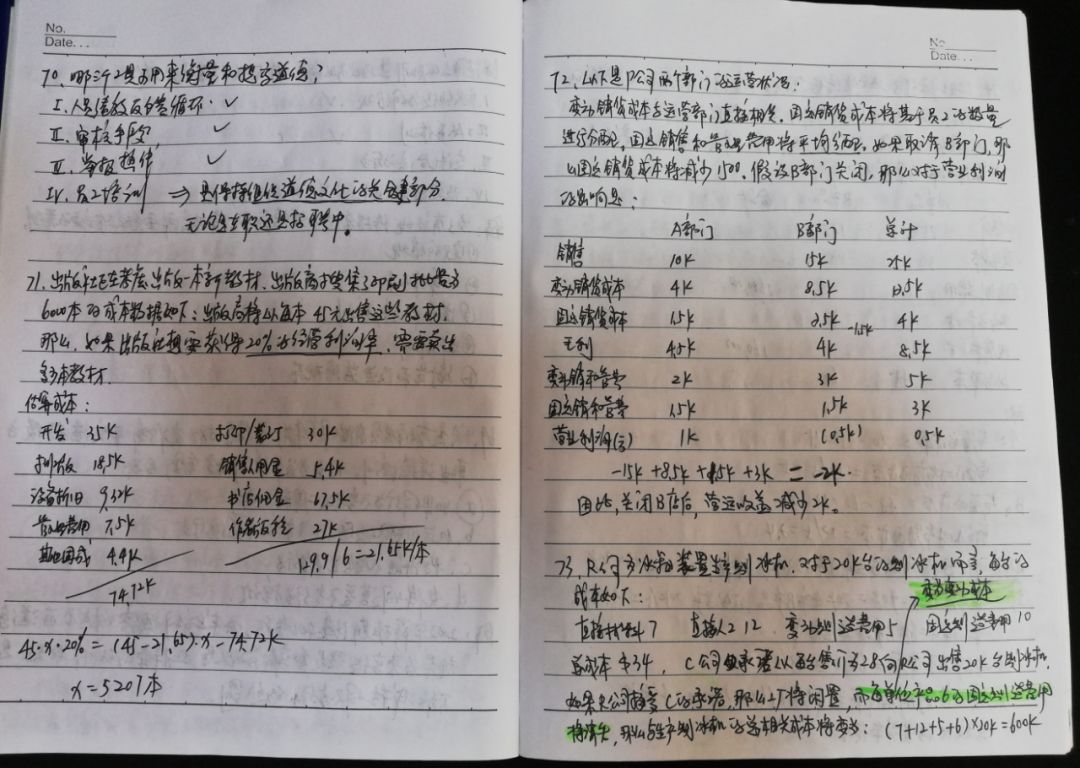 No.
Date...
70. 哪三个工具可用来衡量和提高道德？
I. 人员绩效反馈循环 ✓
II. 审核手段 ✓
III. 举报热线 ✓
IV. 员工培训 ⇒ 是保持组织道德文化的关键部分.
无论是在职还是招聘中。
71. 出版社正在考虑出版一本新教材. 出版商收集了印刷批量为
6000本的成本数据如下：出版商将以每本45元出售这些教材.
那么, 如果出版社想要获得20%的经营利润率, 需要卖出
多少本教材.
估算成本：
开发 35K 打印/装订 30K
排版 18.5K 销售佣金 5.4K
设备折旧 9.32K 书店佣金 67.5K
管理费用 7.5K 作者版税 27K
其他固成 4.4K 129.9/6=21.65K/本
74.72K
45·x·20%=(45-21.65)·x-74.72K
x=5207本
No.
Date...
72. 以下是P公司两个部门的运营状况：
变动销货成本与运营部门直接相关. 固定销货成本将基于员工的数量
进行分配, 固定销售和管理费用将平均分配. 如果取消B部门, 那
么固定销货成本将减少1500. 假设B部门关闭, 那么对于营业利润
的影响是：
A部门 B部门 总计
销售 10K 15K 25K
变动销货成本 4K 8.5K 12.5K
固定销货成本 1.5K 2.5K -1.5K 4K
毛利 4.5K 4K 8.5K
变动销和管费 2K 3K 5K
固定销和管费 1.5K 1.5K 3K
营业利润(亏) 1K (0.5K) 0.5K
-15K+8.5K+1.5K+3K=-2K.
因此, 关闭B店后, 营运收益减少2K。
73. R公司为冰箱装置生产制冰机. 对于20K台的制冰机而言, 每台的
成本如下： 变为变动成本
直接材料7 直接人工12 变动制造费用5 固定制造费用10
总成本$34. C公司承诺以每台售价为28向R公司出售20K台制冰机.
如果R公司接受C的承诺, 那么工厂将闲置, 而每单位产品6的固定制造费用
将消失, 那么与生产制冰机的总相关成本将变为：(7+12+5+6)×20K=600K